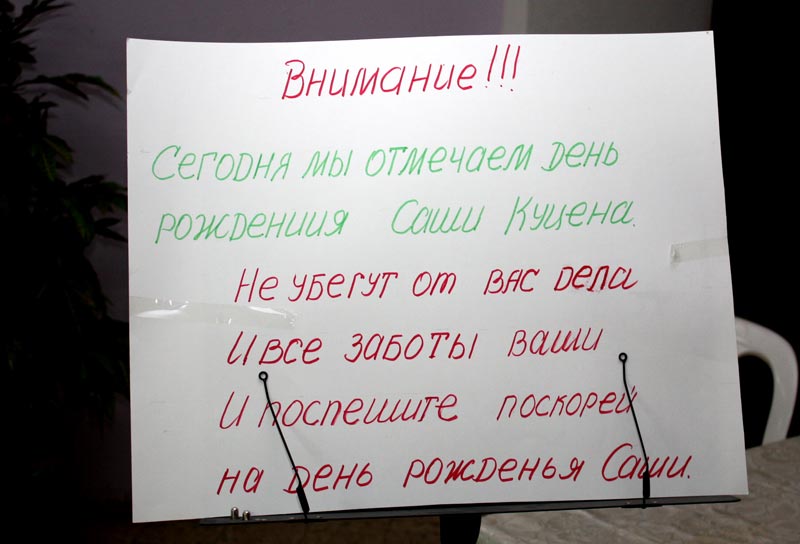 Внимание!!!
Сегодня мы отмечаем день
рождениия Саши Куцена.
Не убегут от вас дела
И все заботы ваши
И поспешите поскорей
на день рожденья Саши.